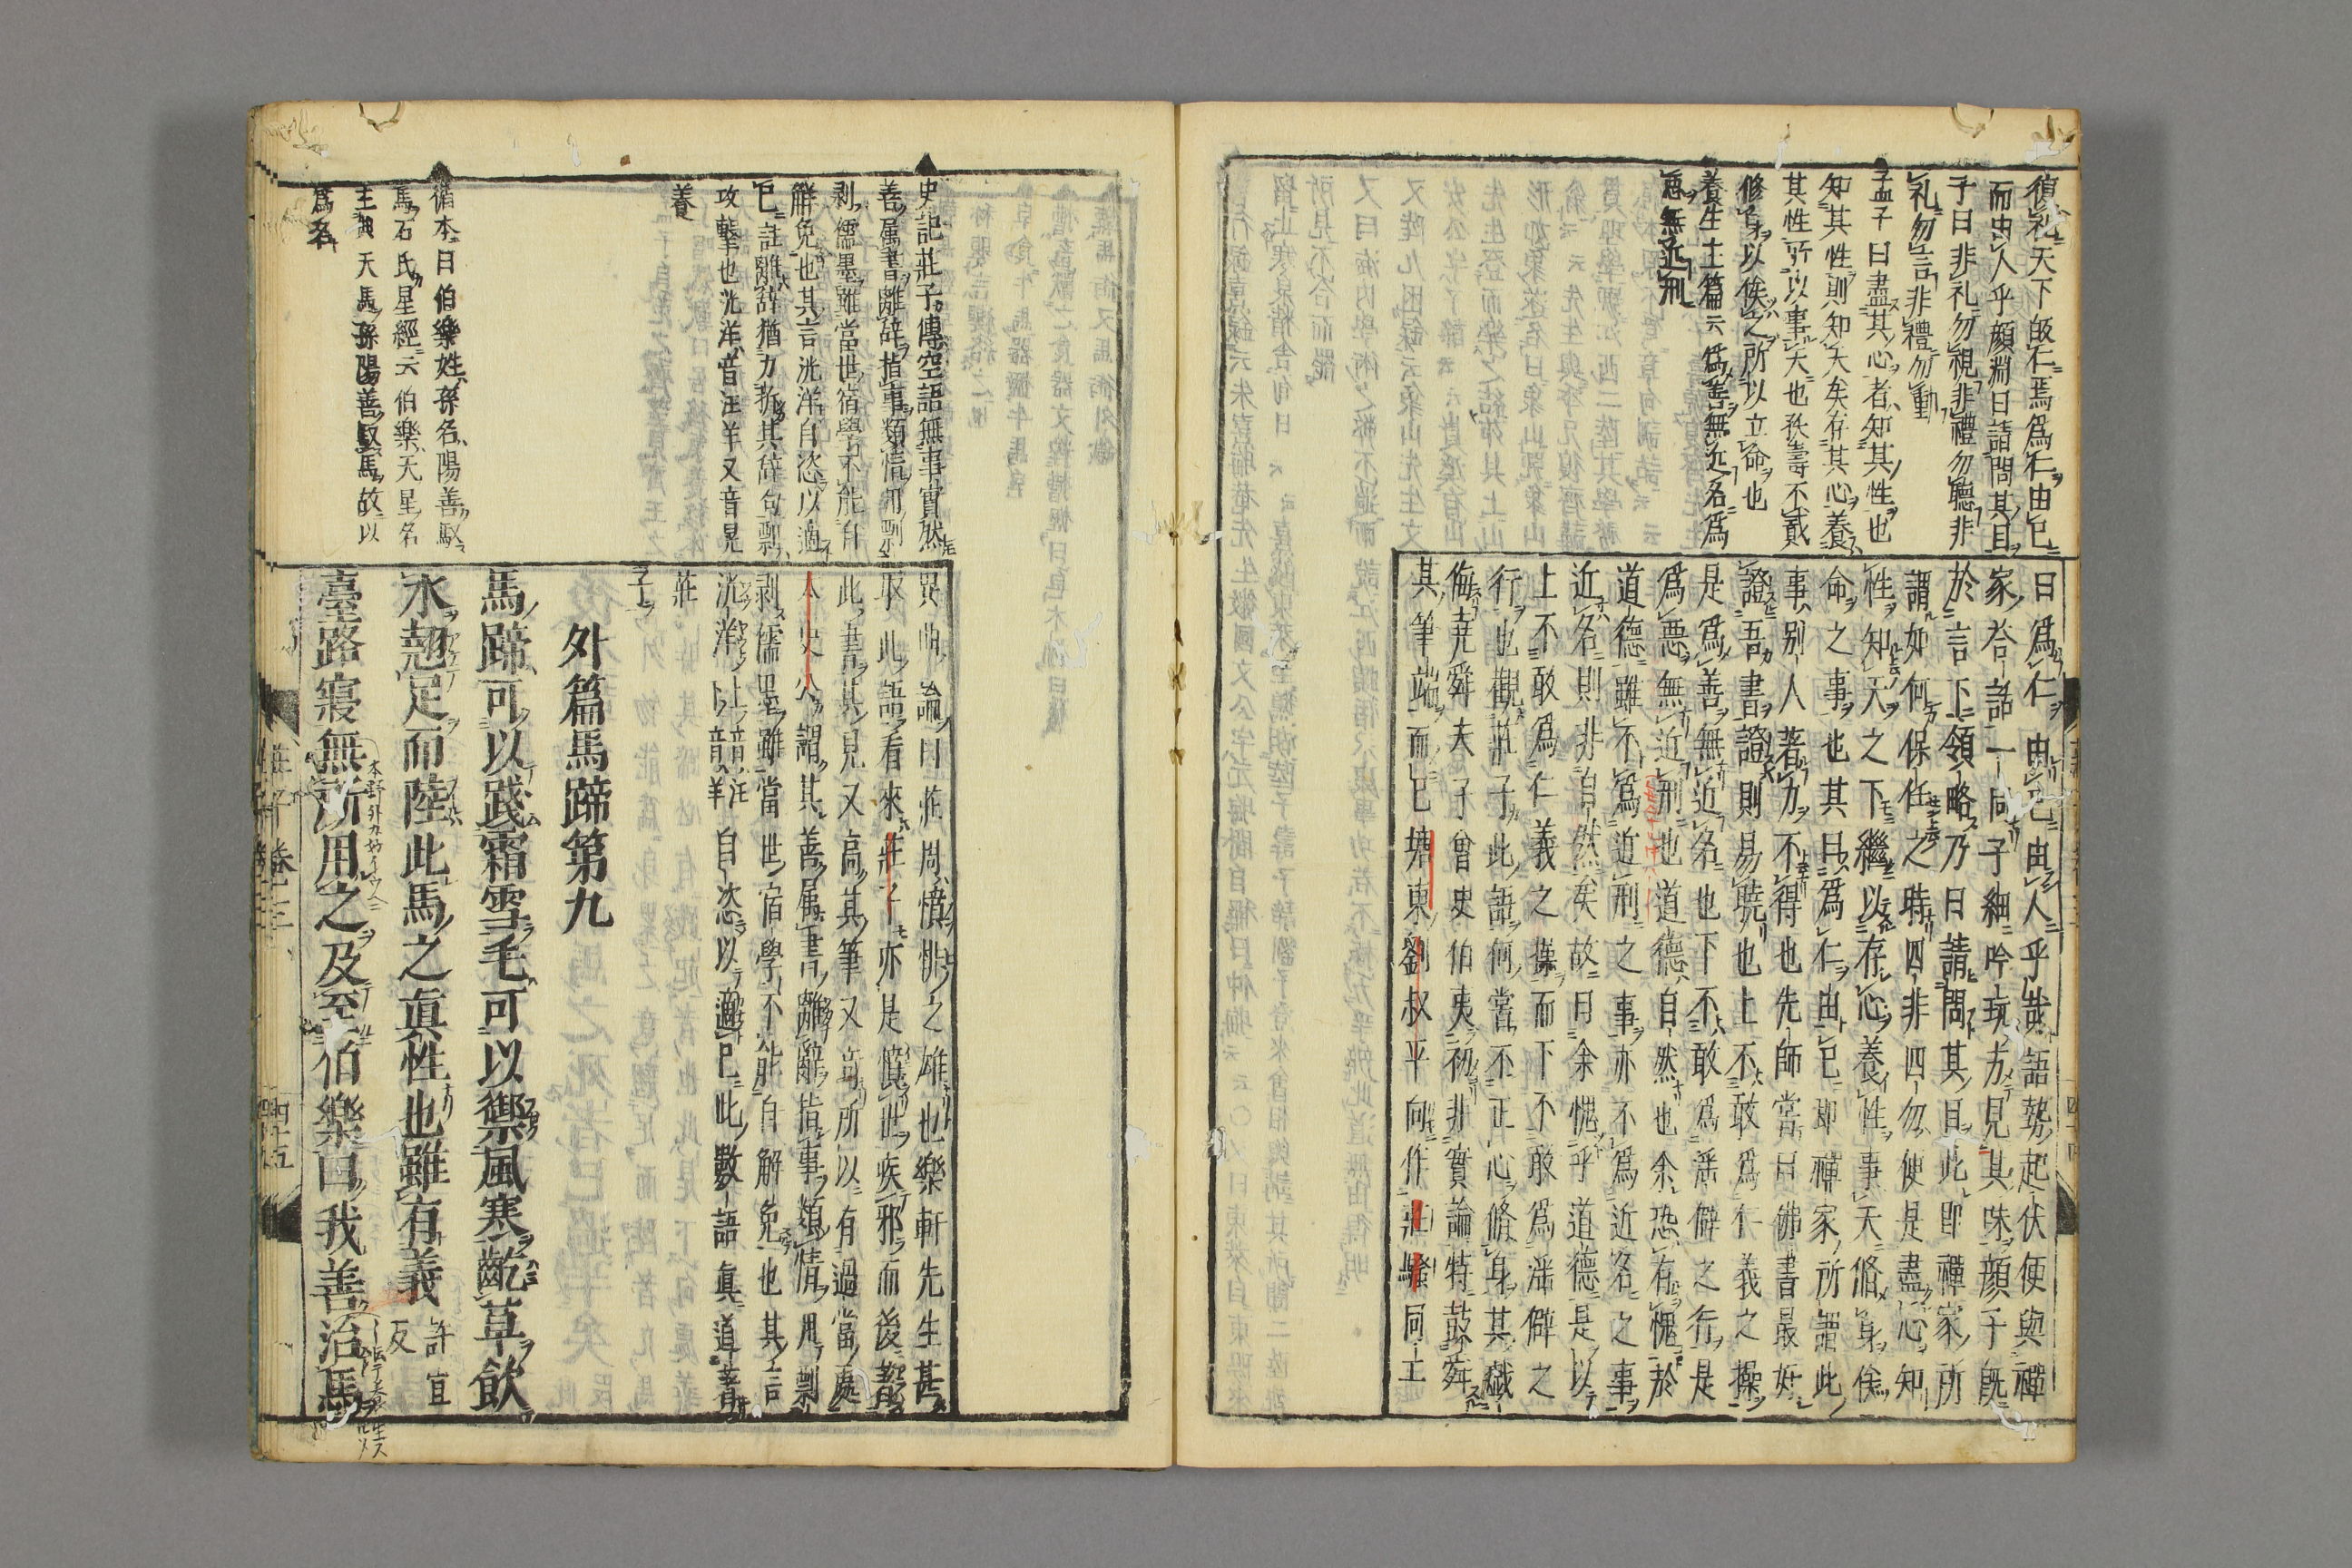 復礼天下皈仁焉爲仁由己
而由人乎顔淵曰請問其目
子曰非礼勿視非禮勿聽非
礼勿言非禮勿動
孟子曰盡其心者知其性也
知其性則知天矣存其心養
其性所以事天也殀壽不貳
修身以俟之所以立命也
養生主篇云爲善無近名爲
惡無近刑
曰爲仁由己由人乎哉語勢起伏便與禪
家答話一同子細吟玩方見其味顔子既
於言下領略乃曰請問其目此即禪家所
謂如何保任之時四非四勿便是盡心知
性知天之下繼以存心養性事天脩身俟
命之事也其曰爲仁由己即禪家所謂此
事別人著力不得也先師嘗曰佛書最好
證吾書證則易曉也上不敢爲仁義之操
是爲善無近名也下不敢爲淫僻之行是
爲惡無近刑也道德自然也余恐有愧於
道德雖不爲近刑之事亦不爲近名之事
近名則非自然矣故曰余愧乎道德是以
上不敢爲仁義之操而下不敢爲淫僻之
行也觀莊子此語何嘗不正心脩身其戲
侮堯舜夫子曾史伯夷初非實論特鼓舞
其筆端而已塘東劉叔平向作莊騷同工
史記莊子傳空語無事實然
善属書離辞指事類情用剽
剥儒墨雖當世宿學不能自
解免也其言洸洋自恣以適
己註離辞猶力析其辞句剽
攻撃也洸洋音汪羊又音晃
養
循本曰伯樂姓孫名陽善馭
馬石氏星經云伯樂天星名
主典天馬孫陽善馭馬故以
爲名
異曲論曰莊周憤悱之雄也樂軒先生甚
取此語看來莊子亦是憤世疾邪而後著
此書其見又高其筆又奇所以有過當處
太史公謂其善属書離辭指事類情用剽
剥儒墨雖當世宿學不能自解免也其言
洸洋上音汪下音羊自恣以適己此數語真道著
莊
子
外篇馬蹄第九
馬蹄可以踐霜雪毛可以禦風寒齕草飲
水翹足而陸此馬之眞性也雖有義許宜反
臺路寢無所用之及至伯樂曰我善治馬